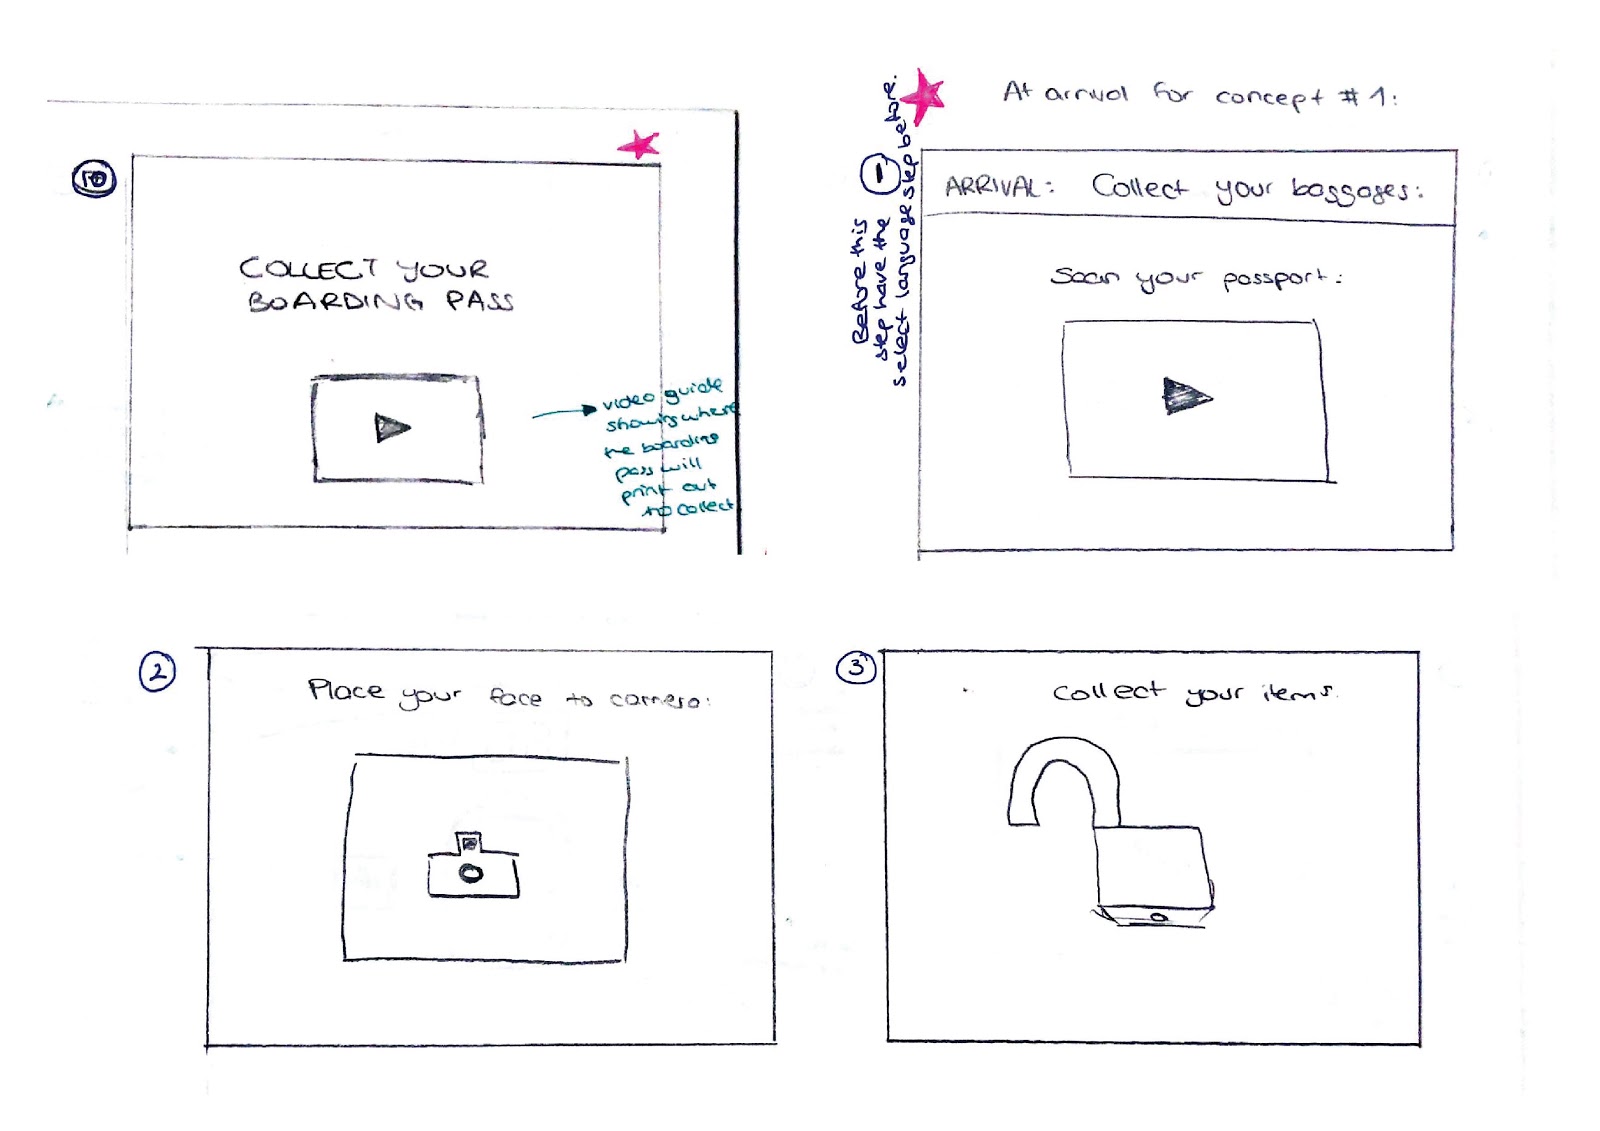 10
COLLECT YOUR
BOARDING PASS
video guide
showing where
the boarding
pass will
print out
to collect
At arrival for concept #1:
Before this
step have the
select language step before.
1
ARRIVAL: Collect your baggages:
Scan your passport:
2
Place your face to camera:
3
Collect your items.